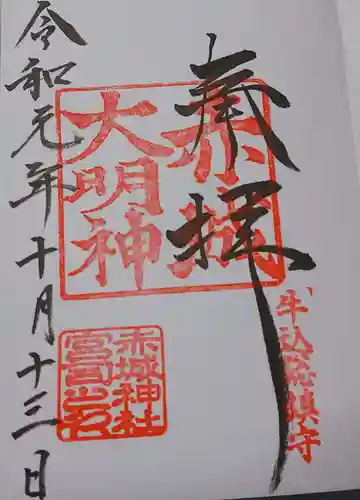 奉拝
牛込総鎮守
赤城
大明神
赤城神社
令和元年十月十三日